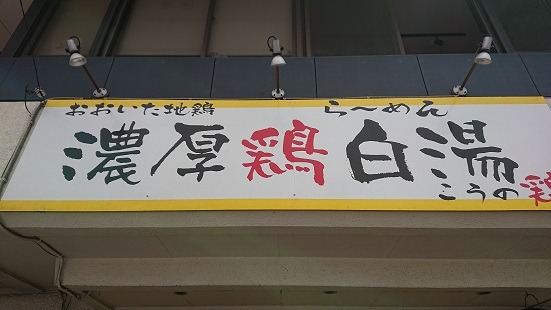 おおいた地鶏 ら〜めん
濃厚鶏白湯
こうの鶏